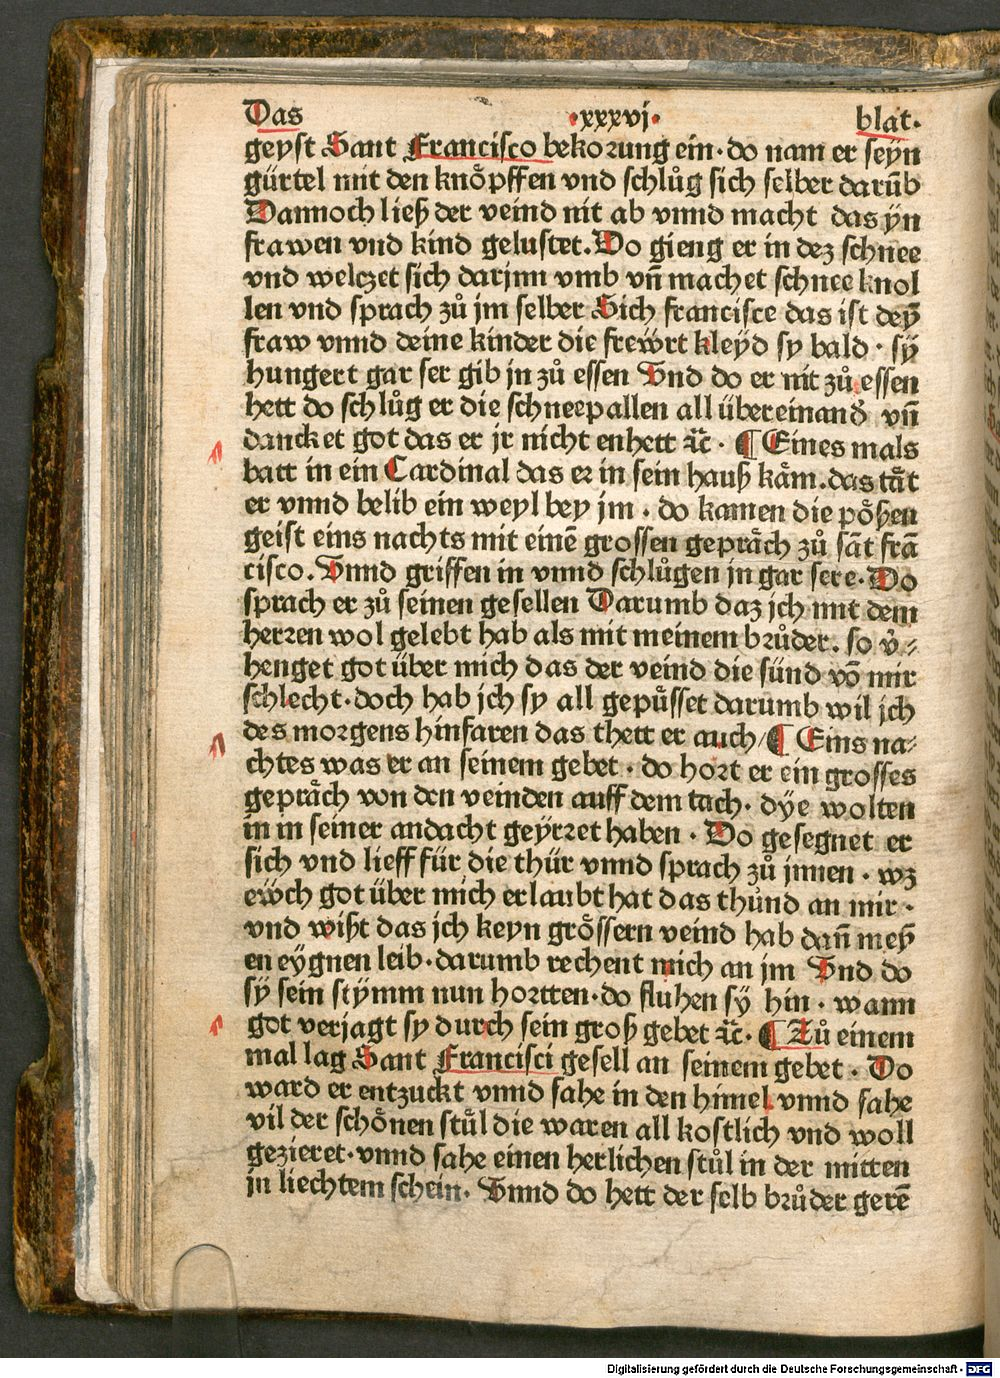 Das ·xxxvj· blat.
geyst Sant Francisco bekorung ein· do nam er seyn
gürtel mit den knöpffen vnd schlůg sich selber darūb
Dannoch ließ der veind nit ab vnnd macht das yn
frawen vnd kind gelustet. Do gieng er in dez schnee
vnd welczet sich darjnn vmb vñ machet schnee knol
len vnd sprach zů jm selber Sich francisce das ist deȳ
fraw vnnd deine kinder die frewͤrt kleyd sy bald · sÿ
hungert gar ser gib jn zů essen Vnd do er nit zů essen
hett do schlůg er die schneepallen all übereinand̕ vñ
dancket got das er jr nicht enhett ⁊c̄ · ¶ Eines mals
batt in ein Cardinal das er in sein hauß kåm. das tåt
er vnnd belib ein weyl bey jm . do kamen die pöſzen
geist eins nachts mit einē grossen gepråch zů sāt frā
cisco. Vnnd griffen in vnnd schlůgen jn gar sere. Do
sprach er zů seinen gesellen Darumb daz jch mit dem
herren wol gelebt hab als mit meinem brůder. so v̕⸗
henget got über mich das der veind die sünd vō mir
schlecht. doch hab jch sy all gepüͤsset darumb wil jch
des morgens hinfaren das thett er auch/ ¶ Eins na⸗
chtes was er an seinem gebet . do hort er ein grosses
gepråch von den veinden auff dem tach. dÿe wolten
in in seiner andacht geÿrret haben . Do gesegnet er
sich vnd lieff für die thür vnnd sprach zů jnnen . wz
ewͤch got über mich erlaubt hat das thůnd an mir .
vnd wißt das jch keyn grössern veind hab dañ meȳ
en eÿgnen leib. darumb rechent mich an jm Vnd do
sÿ sein stÿmm nun hortten. do fluhen sÿ hin . wann
got verjagt sy durch sein groß gebet ⁊c̄. ¶ Zů einem
mal lag Sant Francisci gesell an seinem gebet . Do
ward er entzuckt vnnd sahe in den himel vnnd sahe
vil der schönen stůl die waren all kostlich vnd woll
gezieret. vnnd sahe einen herlichen stůl in der mitten
jn liechtem schein. Vnnd do hett der selb brůder gerē
Digitalisierung gefördert durch die Deutsche Forschungsgemeinschaft - DFG